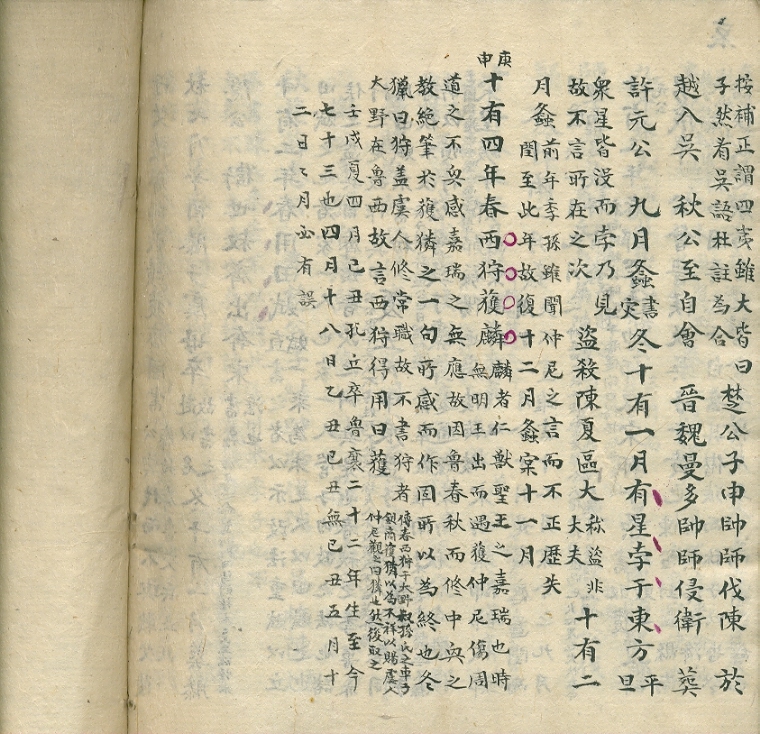 按補正謂四夷雖大皆曰
子然看吳語杜註為合
楚公子申帥師伐陳 於
越入吳 秋公至自會 晉魏曼多帥師侵衛 葬
許元公 九月螽 書災 冬十有一月有星孛于東方 平旦
衆星皆没而孛乃見
故不言所在之次
盜殺陳夏區大 称盜非大夫 十有二
月螽
前年季孫雖聞仲尼之言而不正歷失
閏至此年故復十二月螽実十一月
庚申
十有四年春西狩獲麟
麟者仁獸聖王之嘉瑞也時
無明王出而遇獲仲尼傷周
道之不奐感嘉瑞之無應故因魯春秋而修中奐之
教絶筆於獲獜之一句所感而作固所以為終也冬
獵曰狩盖虞人修常職故不書狩者
大野在魯西故言西狩得用曰獲
傳春西狩于大野叔孫氏之車子
鉏商獲獜以為不祥以賜虞人
仲尼觀之曰獜也然後取之
壬戌夏四月己丑孔丘卒魯襄二十二年生至今
七十三也四月十八日乙丑巳丑無己丑五月十
二日〻月必有誤